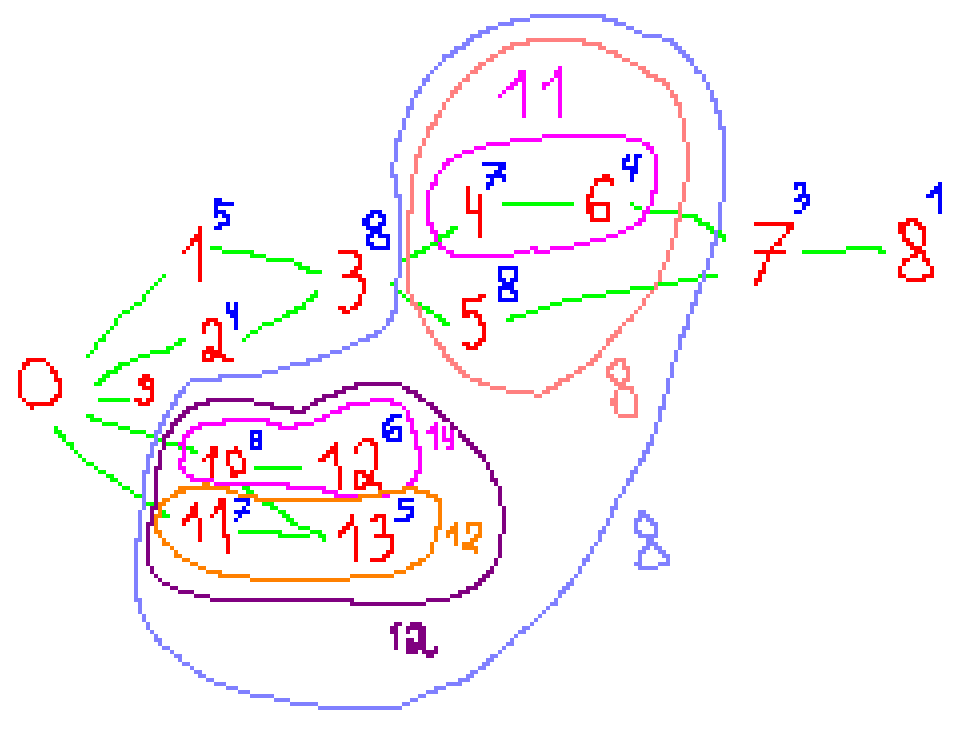 11
4 7 6 4
1 5 3 8 7 3 8 1
2 4 5 8
0 9 8
10 8 12 6 14
11 7 13 5 12 8
12